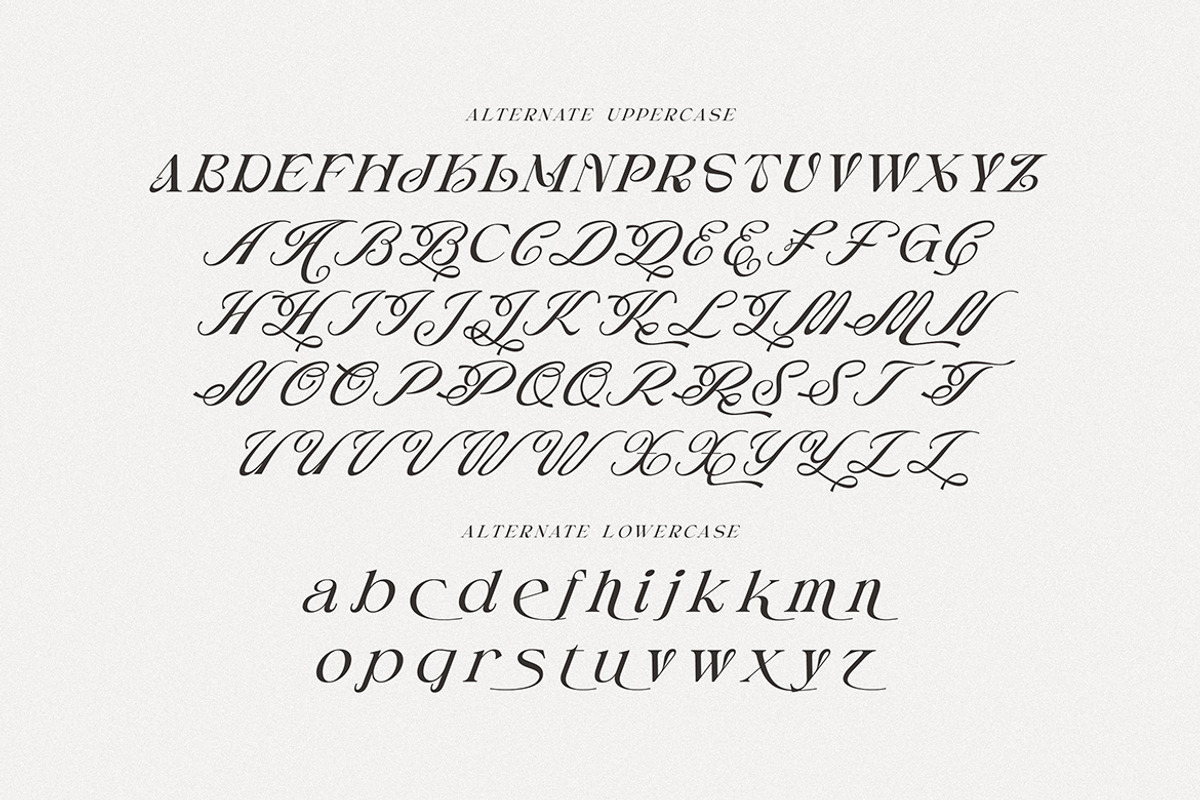 ALTERNATE UPPERCASE
ABDEFHJKLMNPRSTUVWXYZ
AABBCCDDEEFFGG
HHIIJJKKLLMMN
NOOPPQQRRSSTT
UUVVWWXXYYZZ
ALTERNATE LOWERCASE
abcdefhijkkmn
opqrstuvwxyz